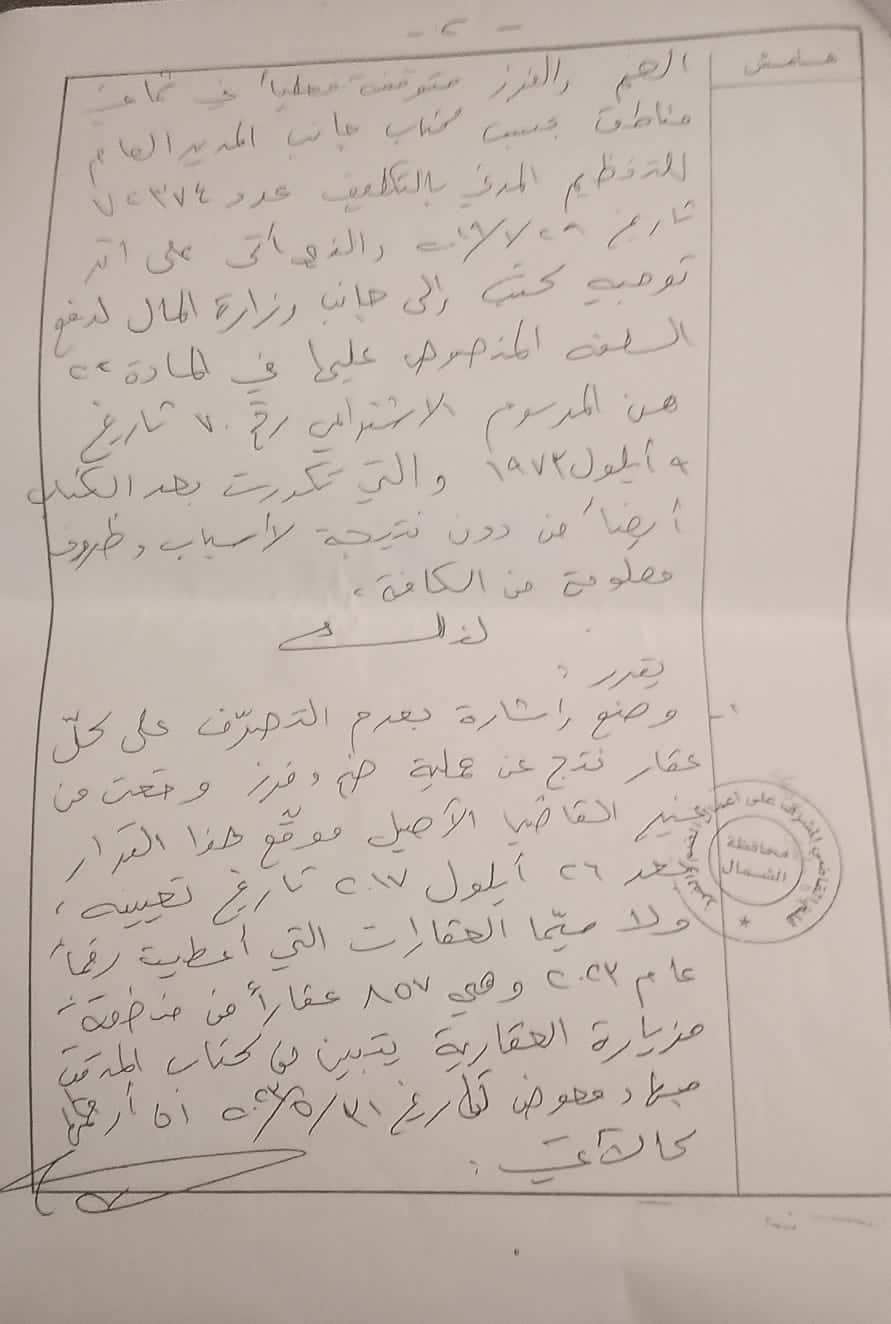 - ٢ -
هامش
الضم والفرز متوقفة فعلياً في ثماني
مناطق بحسب كتاب جانب المدير العام
للتنظيم المدني بالتكليف عدد
تاريخ والذي أتى على اثر
توجيه كتب إلى جانب وزارة المال لدفع
السلفة المنصوص عليها في المادة ٢٢
من المرسوم الاشتراعي رقم ٧٠ تاريخ
٩ أيلول ١٩٨٣ والتي تكررت بعد الكتاب
أيضاً من دون نتيجة لأسباب وظروف
معلومة من الكافة.
لذلك
يقرر:
١- وضع إشارة بعدم التصرّف على كلّ
عقار نتج عن عملية ضم وفرز وقعت من
غير القاضي الأصيل موقّع هذا القرار
بعد ٢٦ أيلول ٢٠١٧ تاريخ تعيينه،
ولا سيّما العقارات التي أعطيت رقماً
عام ٢٠٢٣ وهي ٨٥٧ عقاراً من منطقة
مزيارة العقارية يتبين من كتاب
معوض تاريخ ٢٠٢٣/٥/٣١ أن أرقامها
كالآتي:
محافظة
الشمال